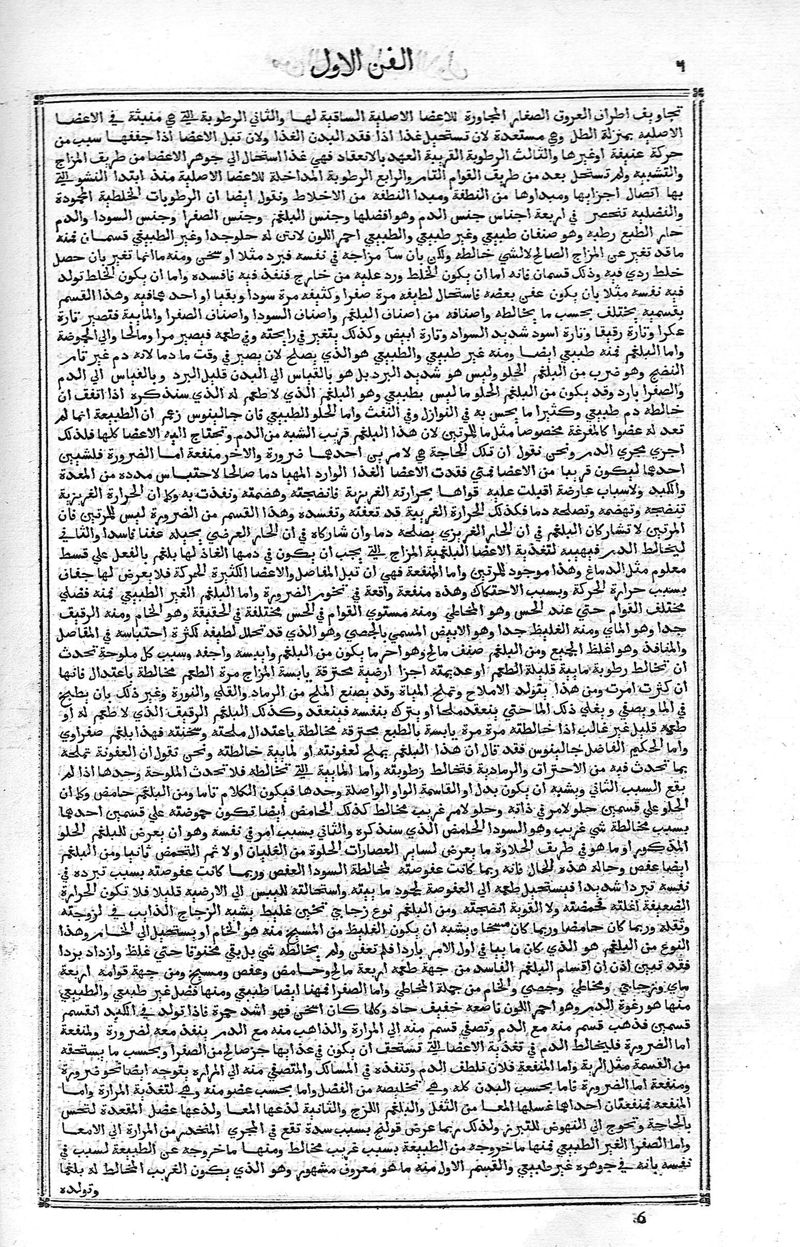 الفن الاول
٦
تجاويف اطراف العروق الصغار المجاورة للاعضا الاصلية الساقية لها والثاني الرطوبة التي هي منبثة في الاعضا
الاصلية بمنزلة الطل وهي مستعدة لان تستحيل غذا اذا فقد البدن الغذا ولان تبل الاعضا اذا جففها سبب من
حركة عنيفة اوغيرها والثالث الرطوبة القريبة العهد بالانعقاد فهي غذا استحال الي جوهر الاعضا من طريف المزاج
والتشبيه ولم تستحل بعد من طريف القوام التام والرابع الرطوبة المداخلة للاعضا الاصلية منذ ابتدا النشو التي
بها اتصال اجزايها ومبداوها من النطفة ومبدا النطفة من الاخلاط ونقول ايضا ان الرطوبات الخلطية المحمودة
والفضلية تنحصر في اربعة اجناس جنس الدم وهو افضلها وجنس البلغم وجنس الصفرا وجنس السودا والدم
حار الطبع رطبه وهو صنفان طبيعي وغير طبيعي والطبيعي احمر اللون لانتن له حلو جدا وغير الطبيعي قسمان فمنه
ما قد تغير عن المزاج الصالح لالشي خالطه ولكن بان سآ مزاجه في نفسه فبرد مثلا او سخن ومنه ما انما تغير بان حصل
خلط ردي فيه وذلك قسمان فانه اما ان يكون الخلط ورد عليه من خارج فنفذ فيه فافسده واما ان يكون الخلط تولد
فيه نفسه مثلا بان يكون عفن بعضه فاستحال لطيفه مرة صفرا وكثيفه مرة سودا وبقيا او احدهما فيه وهذا القسم
بقسميه يختلف بحسب ما يخالطه واصنافه من اصناف البلغم واصناف السودا واصناف الصفرا والمايية فتصير تارة
عكرا وتارة رقيقا وتارة اسود شديد السواد وتارة ابيض وكذلك يتغير في رايحته وفي طعمه فيصير مرا ومالحا والي الحموضة
واما البلغم فمنه طبيعي ايضا ومنه غير طبيعي والطبيعي هو الذي يصلح لان يصير في وقت ما دما لانه دم غير تام
النضج وهو ضرب من البلغم الحلو وليس هو شديد البرد بل هو بالقياس الي البدن قليل البرد وبالقياس الي الدم
والصفرا بارد وقد يكون من البلغم الحلو ما ليس بطبيعي وهو البلغم الذي لا طعم له الذي سنذكره اذا اتفف ان
خالطه دم طبيعي وكثيرا ما يحس به في النوازل وفي النفث واما الحلو الطبيعي فان جالينوس زعم ان الطبيعة انما لم
تعد له عضوا كالمفرغة مخصوصا مثل ما للمرتين لان هذا البلغم قريب الشبه من الدم وتحتاج اليه الاعضا كلها فلذلك
اجري مجري الدم ونحن نقول ان تلك الحاجة هي لامرين احدهما ضرورة والاخر منفعة اما الضرورة فلشيين
احدهما ليكون قريبا من الاعضا فمتي فقدت الاعضا الغذا الوارد المهيا دما صالحا لاحتباس مدده من المعدة
والكبد ولاسباب عارضة اقبلت عليه قواها بحرارته الغريزية فانضجته وهضمته وتغذت به وكما ان الحرارة الغريزية
تنضجه وتهضمه وتصلحه دما فكذلك الحرارة الغريبة قد تعفنه وتفسده وهذا القسم من الضرورة ليس للمرتين فان
المرتين لا تشاركان البلغم في ان الحار الغريزي يصلحه دما وان شاركاه في ان الحار العرضي يحيله عفنا فاسدا والثاني
ليخالط الدم فيهييه لتغذية الاعضا البلغمية المزاج التي يجب ان يكون في دمها الغاذ لها بلغم بالفعل علي قسط
معلوم مثل الدماغ وهذا موجود للمرتين واما المنفعة فهي ان تبل المفاصل والاعضا الكثيرة الحركة فلا يعرض لها جفاف
بسبب حرارة الحركة وبسبب الاحتكاك وهذه منفعة واقعة في تخوم الضرورة واما البلغم الغير الطبيعي فمنه فضلي
مختلف القوام حتي عند الحس وهو المخاطي ومنه مستوي القوام في الحس مختلفه في الحقيقة وهو الخام ومنه الرقيف
جدا وهو الماي ومنه الغليظ جدا وهو الابيض المسمي بالجصي وهو الذي قد تحلل لطيفه لكثرة احتباسه في المفاصل
والمنافذ وهو اغلظ الجميع ومن البلغم صنف مالح وهو احر ما يكون من البلغم وايبسه واجفه وسبب كل ملوحة تحدث
ان تخالط رطوبة مايية قليلة الطعم او عديمته اجزا ارضية محترقة يابسة المزاج مرة الطعم مخالطة باعتدال فانها
ان كثرت امرت ومن هذا يتولد الاملاح وتملح المياة وقد يصنع الملح من الرماد والقلي والنورة وغير ذلك بان يطبخ
في الما ويصفي ويغلي ذلك الما حتي ينعقد ملحا او يترك بنفسه فينعقد وكذلك البلغم الرقيف الذي لا طعم له او
طعمه قليل غير غالب اذا خالطته مرة مرة يابسة بالطبع محترقة مخالطة باعتدال ملحته وسخنته فهذا بلغم صفراوي
واما الحكيم الفاضل جالينوس فقد قال ان هذا البلغم يملح لعفونته او لمايية خالطته ونحن نقول ان العفونة تملحه
بما تحدث فيه من الاحتراف والرمادية فتخالط رطوبته واما المايية التي تخالطه فلا تحدث الملوحة وحدها اذا لم
يقع السبب الثاني ويشبه ان يكون بدل او القاسمة الواو الواصلة وحدها فيكون الكلام تاما ومن البلغم حامض وكما ان
الحلو علي قسمين حلو لامر في ذاته وحلو لامر غريب مخالط كذلك الحامض ايضا تكون حموضته علي قسمين احدهما
بسبب مخالطة شي غريب وهو السودا الحامض الذي سنذكره والثاني بسبب امر في نفسه وهو ان يعرض للبلغم الحلو
المذكور او ما هو في طريف الحلاوة ما يعرض لساير العصارات الحلوة من الغليان اولا ثم التحمض ثانيا ومن البلغم
ايضا عفص وحاله هذه الحال فانه ربما كانت عفوصته لمخالطة السودا العفص وربما كانت عفوصته بسبب تبرده في
نفسه تبردا شديدا فيستحيل طعمه الي العفوصة لجمود ماييته واستحالته لليبس الي الارضية قليلا فلا تكون الحرارة
الضعيفة اغلته فحمضته ولا القوية انضجته ومن البلغم نوع زجاجي ثخين غليظ يشبه الزجاج الذايب في لزوجته
وثقله وربما كان حامضا وربما كان مسخا ويشبه ان يكون الغليظ من المسيخ منه هو الخام او يستحيل الي الخام وهذا
النوع من البلغم هو الذي كان ماييا في اول الامر باردا فلم تعفن ولم يخالطه شي بل بقي مخنوقا حتي غلظ وازداد بردا
فقد تبين اذن ان اقسام البلغم الفاسد من جهة طعمه اربعة مالح وحامض وعفص ومسيخ ومن جهة قوامه اربعة
ماي وزجاجي ومخاطي وجصي والخام من جملة المخاطي واما الصفرا فمنها ايضا طبيعي ومنها فضل غير طبيعي والطبيعي
منها هو رغوة الدم وهو احمر اللون ناصعه خفيف حاد وكلما كان اسخن فهو اشد حمرة فاذا تولد في الكبد انقسم
قسمين فذهب قسم منه مع الدم وتصفي قسم منه الي المرارة والذاهب منه مع الدم ينفذ معه لضرورة ولمنفعة
اما الضرورة فليخالط الدم في تغذية الاعضا التي تستحف ان يكون في غذايها جز صالح من الصفرا وبحسب ما يستحقه
من القسمة مثل الرية واما المنفعة فلان تلطف الدم وتنفذه في المسالك والمتصفي منه الي المرارة يتوجه ايضا نحو ضرورة
ومنفعة اما الضرورة فاما بحسب البدن كله وهي تخليصه من الفضل واما بحسب عضو منه وهي لتغذية المرارة واما
المنفعة فمنفعتان احداهما غسلها المعا من الثفل والبلغم اللزج والثانية لذعها المعا ولذعها عضل المقعدة لتحس
بالحاجة وتحوج الي النهوض للتبرز ولذلك ربما عرض قولنج بسبب سدة تقع في المجري المنحدر من المرارة الي الامعا
واما الصفرا الغير الطبيعي فمنها ما خروجه من الطبيعة بسبب غريب مخالط ومنها ما خروجه عن الطبيعة لسبب في
نفسه بانه في جوهره غير طبيعي والقسم الاول منه ما هو معروف مشهور وهو الذي يكون الغريب المخالط له بلغما
وتولده
6